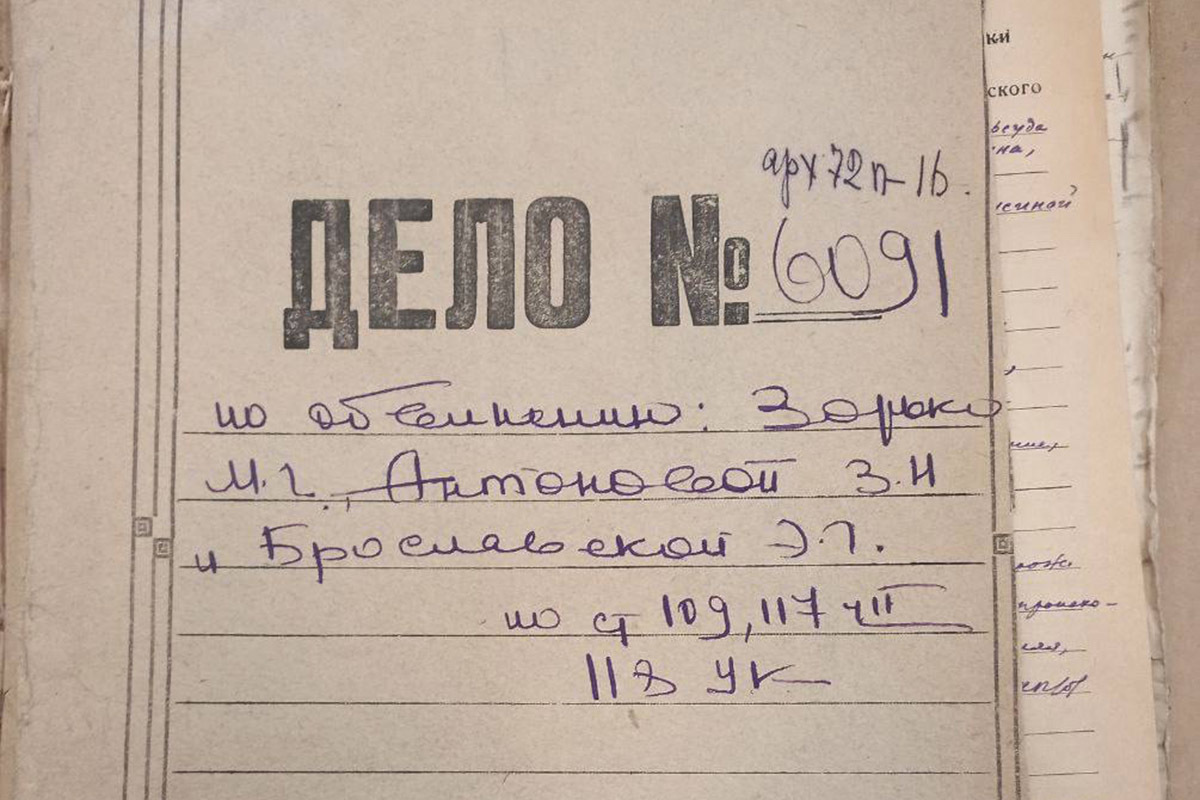 арх 72 п-16.
ДЕЛО № 6091
по обвинению: Зорько
М.Г., Антоновой З.Н
и Брославской Э.Г.
по ст 109, 117 ч II
118 УК
ки
ского
синой